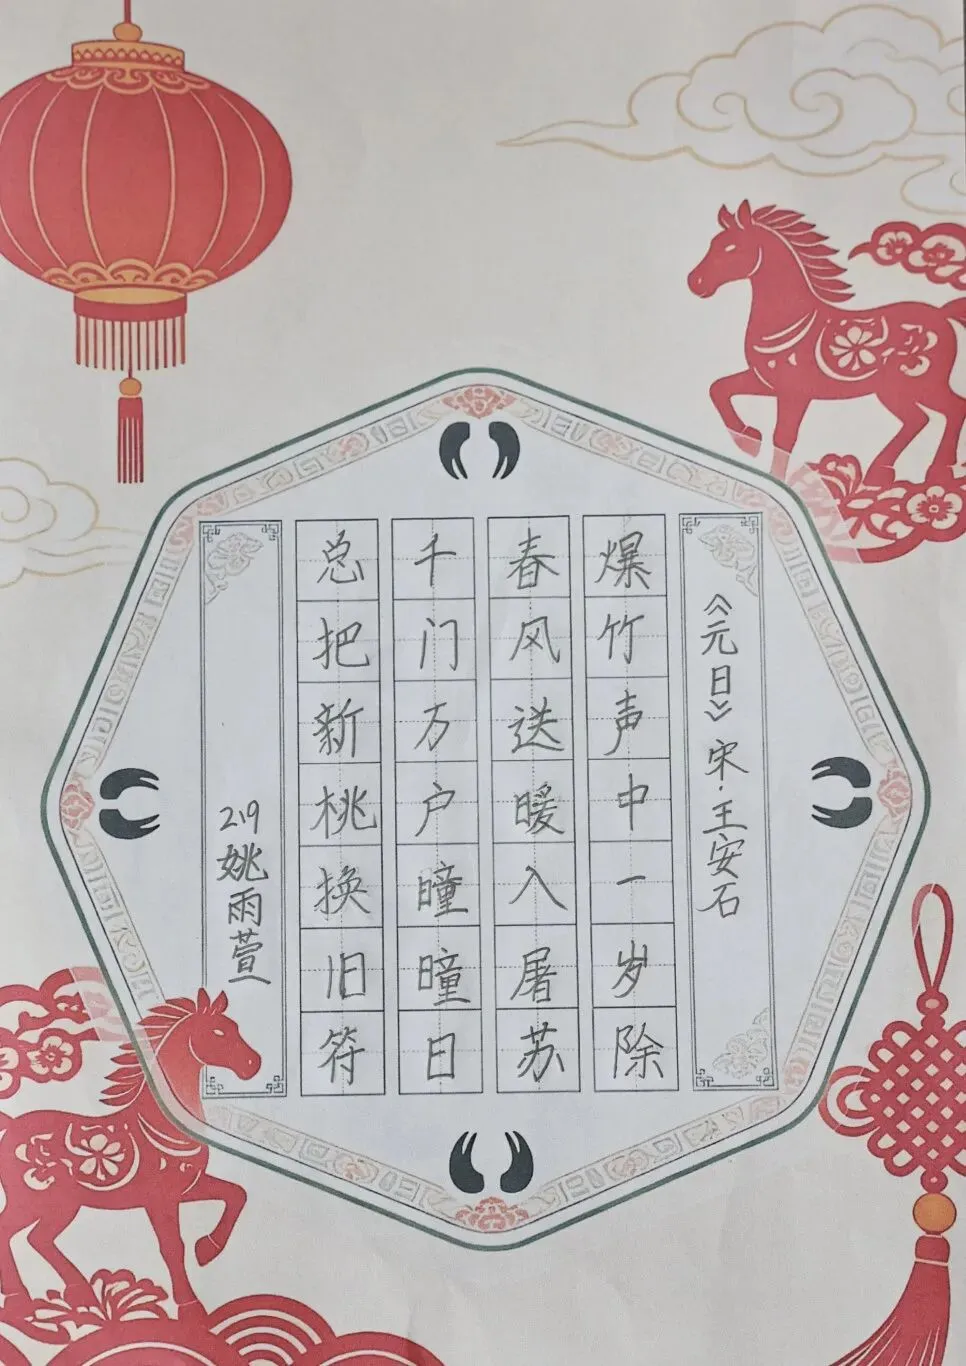 《元日》宋·王安石
爆竹声中一岁除
春风送暖入屠苏
千门万户瞳瞳日
总把新桃换旧符
2.19姚雨萱